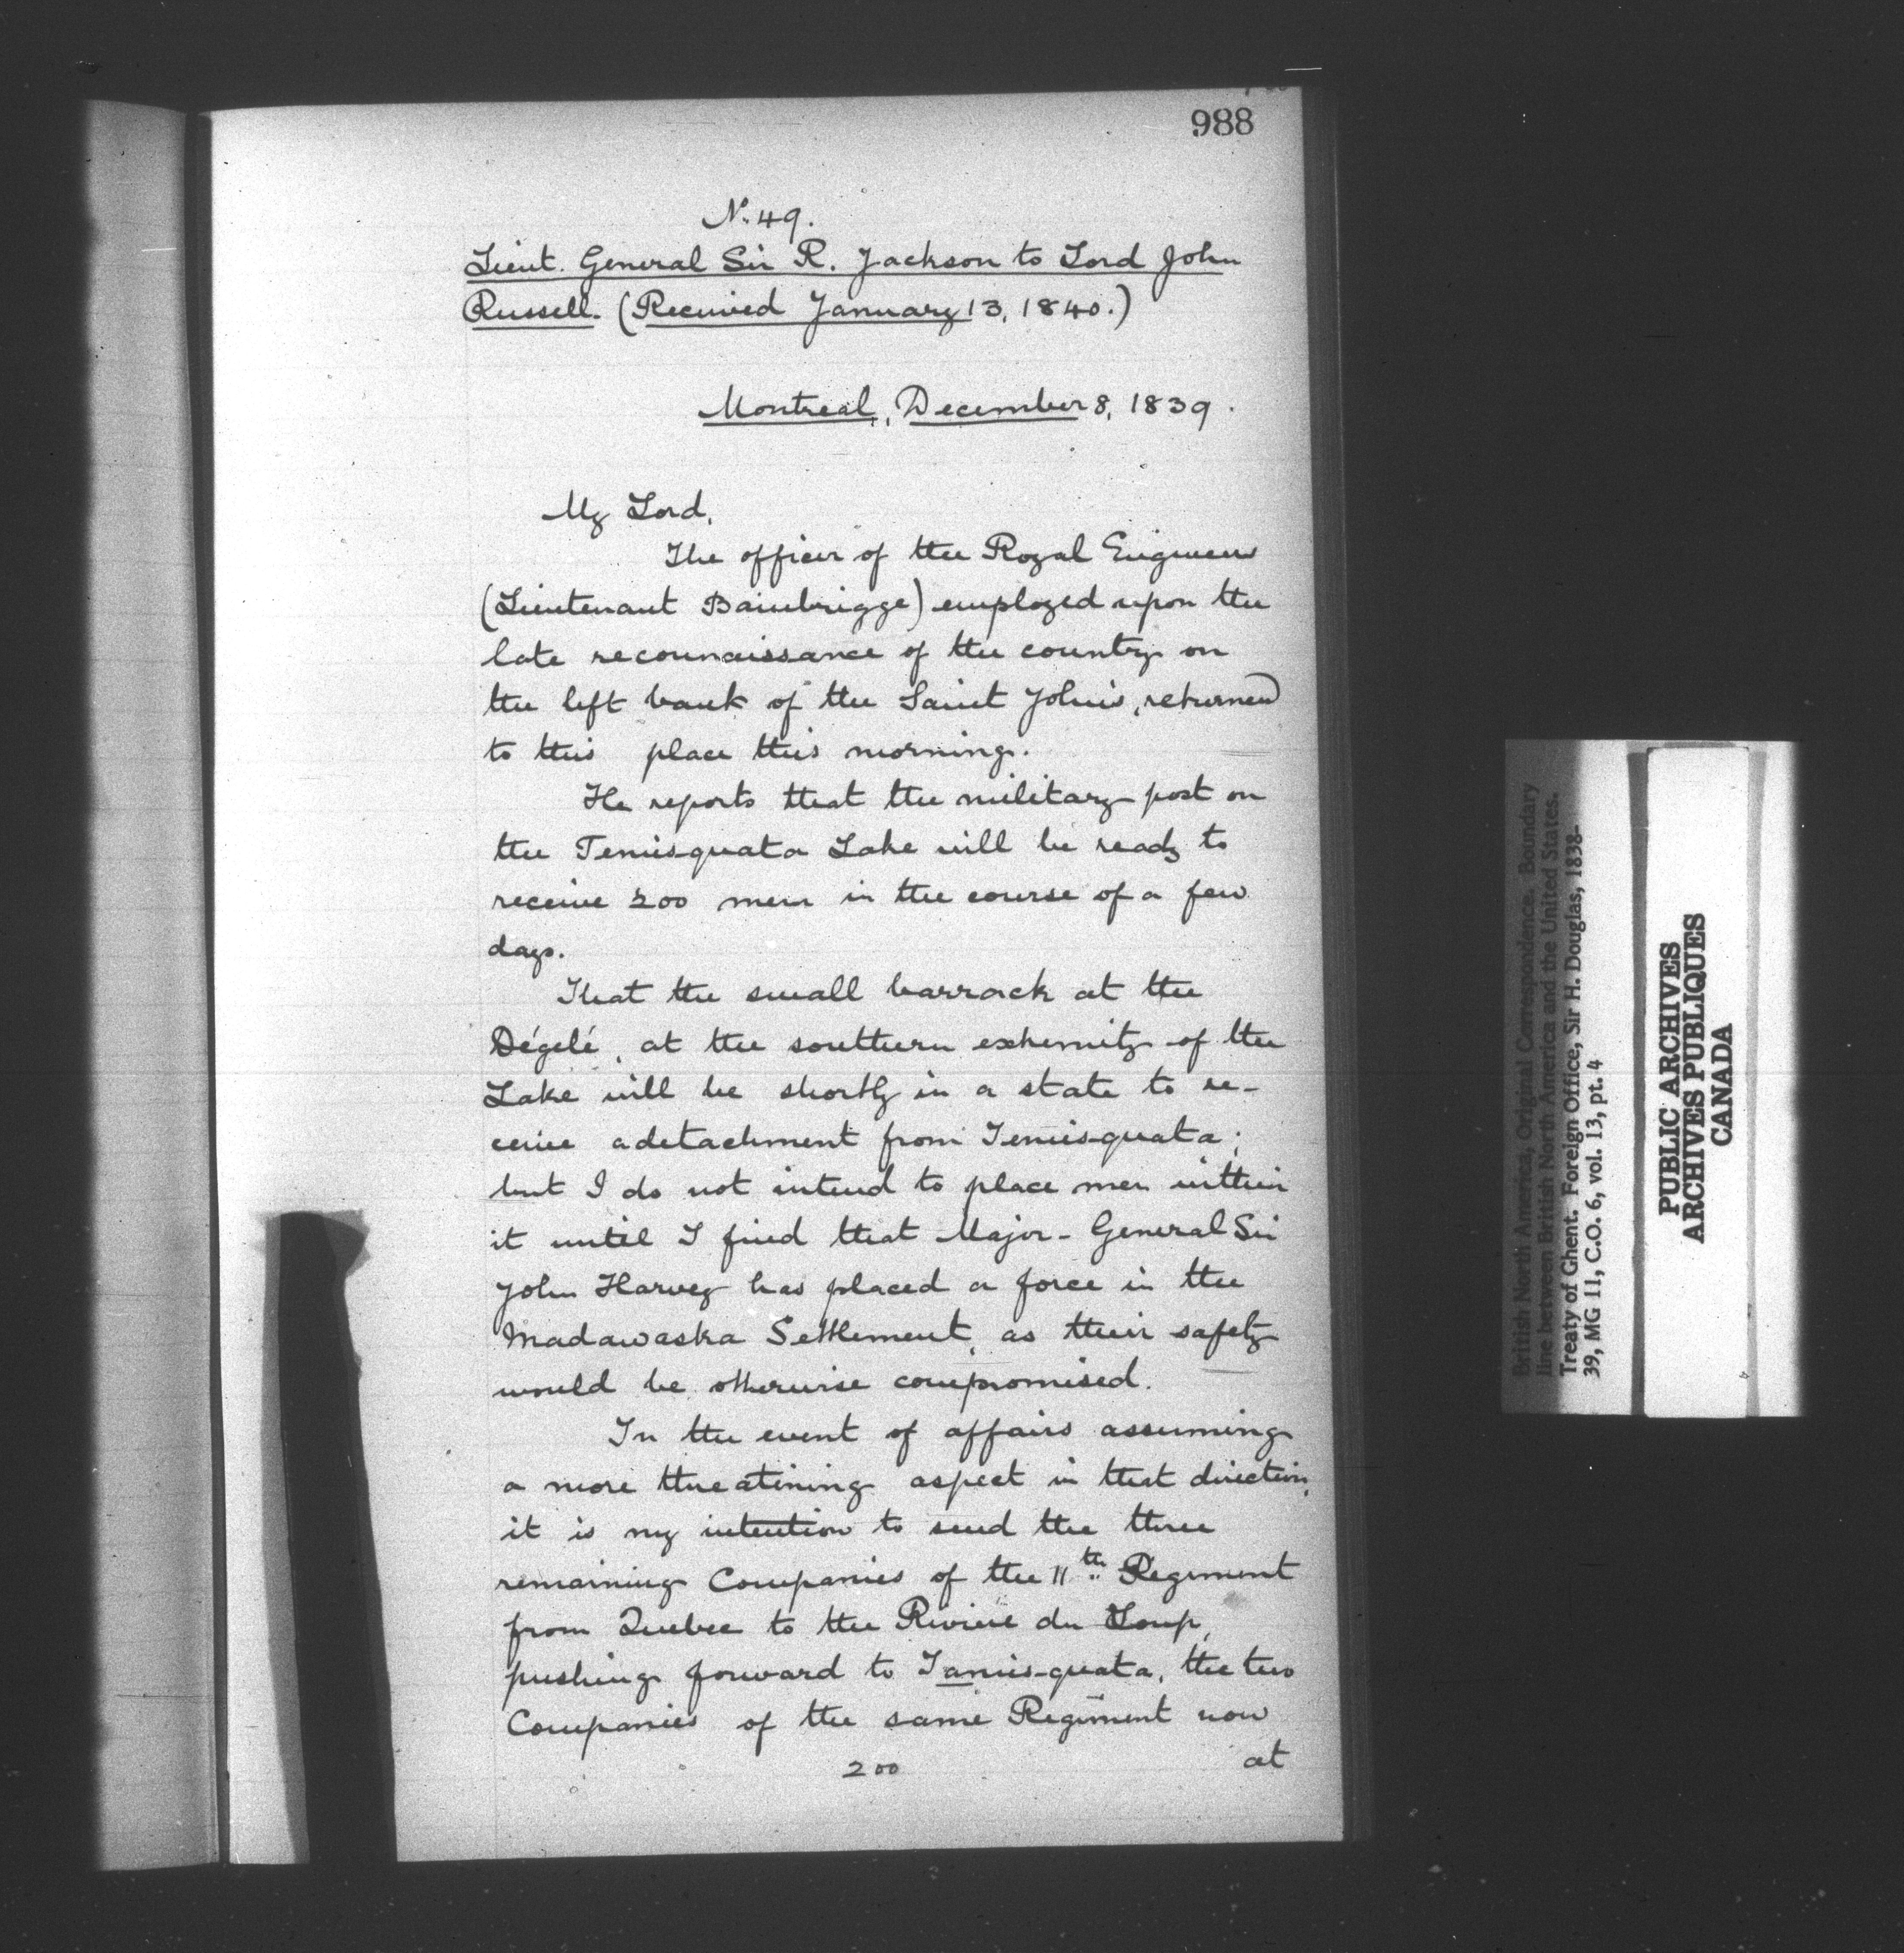 988
No. 49.
Lieut. General Sir R. Jackson to Lord John
Russell. (Received January 13, 1840.)
Montreal, December 8, 1839.
My Lord,
The officer of the Royal Engineers
(Lieutenant Bainbrigge) employed upon the
late reconnaissance of the country on
the left bank of the Saint John's, returned
to this place this morning.
He reports that the military post on
the Temis-quata Lake will be ready to
receive 200 men in the course of a few
days.
That the small barrack at the
Dégelé, at the southern extremity of the
Lake will be shortly in a state to re-
ceive a detachment from Temis-quata;
but I do not intend to place men within
it until I find that Major-General Sir
John Harvey has placed a force in the
Madawaska Settlement, as their safety
would be otherwise compromised.
In the event of affairs assuming
a more threatining aspect in that direction,
it is my intention to send the three
remaining Companies of the 11th Regiment
from Quebec to the Riviere du Loup,
pushing forward to Tamis-quata, the two
Companies of the same Regiment now
200
at
British North America, Original Correspondence. Boundary
line between British North America and the United States.
Treaty of Ghent. Foreign Office, Sir H. Douglas, 1838-
39, MG 11, C.O. 6, vol. 13, pt. 4
PUBLIC ARCHIVES
ARCHIVES PUBLIQUES
CANADA